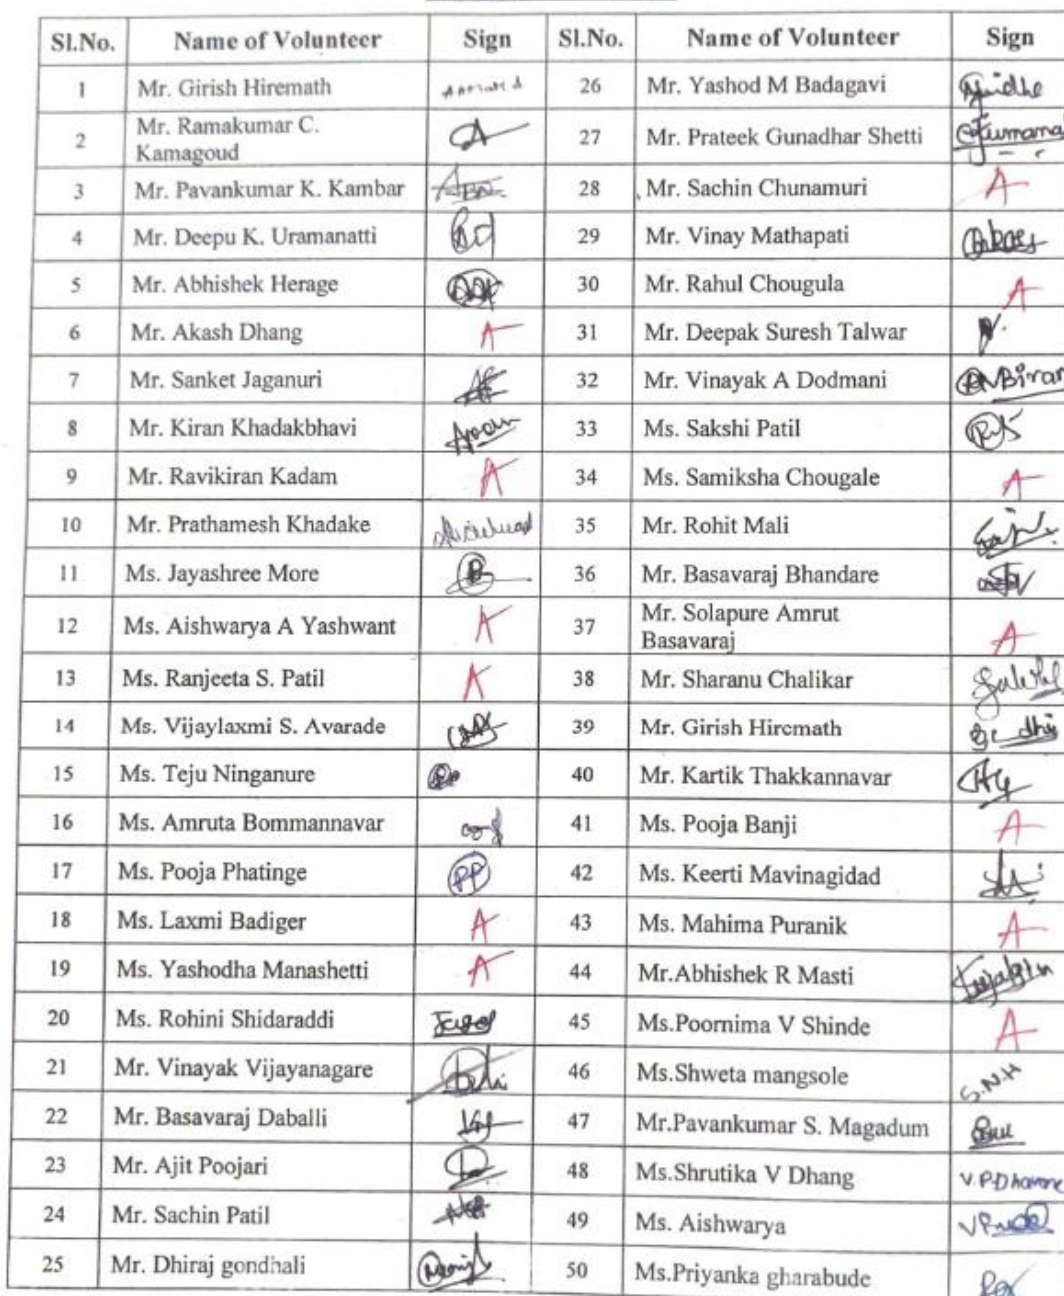 Sl.No. Name of Volunteer Sign Sl.No. Name of Volunteer Sign
1 Mr. Girish Hiremath 26 Mr. Yashod M Badagavi
2 Mr. Ramakumar C. Kamagoud 27 Mr. Prateek Gunadhar Shetti
3 Mr. Pavankumar K. Kambar 28 Mr. Sachin Chunamuri A
4 Mr. Deepu K. Uramanatti 29 Mr. Vinay Mathapati
5 Mr. Abhishek Herage 30 Mr. Rahul Chougula A
6 Mr. Akash Dhang A 31 Mr. Deepak Suresh Talwar
7 Mr. Sanket Jaganuri 32 Mr. Vinayak A Dodmani
8 Mr. Kiran Khadakbhavi 33 Ms. Sakshi Patil
9 Mr. Ravikiran Kadam A 34 Ms. Samiksha Chougale A
10 Mr. Prathamesh Khadake 35 Mr. Rohit Mali
11 Ms. Jayashree More 36 Mr. Basavaraj Bhandare
12 Ms. Aishwarya A Yashwant A 37 Mr. Solapure Amrut Basavaraj A
13 Ms. Ranjeeta S. Patil A 38 Mr. Sharanu Chalikar
14 Ms. Vijaylaxmi S. Avarade 39 Mr. Girish Hiremath
15 Ms. Teju Ninganure 40 Mr. Kartik Thakkannavar
16 Ms. Amruta Bommannavar 41 Ms. Pooja Banji A
17 Ms. Pooja Phatinge PP 42 Ms. Keerti Mavinagidad
18 Ms. Laxmi Badiger A 43 Ms. Mahima Puranik A
19 Ms. Yashodha Manashetti A 44 Mr.Abhishek R Masti
20 Ms. Rohini Shidaraddi 45 Ms.Poornima V Shinde A
21 Mr. Vinayak Vijayanagare 46 Ms.Shweta mangsole S.N.H
22 Mr. Basavaraj Daballi 47 Mr.Pavankumar S. Magadum
23 Mr. Ajit Poojari 48 Ms.Shrutika V Dhang
24 Mr. Sachin Patil 49 Ms. Aishwarya
25 Mr. Dhiraj gondhali 50 Ms.Priyanka gharabude